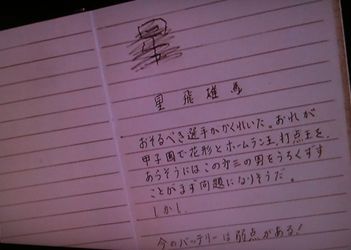 星飛雄馬
おそるべき選手がかくれいた。おれが
甲子園で花形とホームラン王、打点王を、
あらそうにはこの第三の男をうちくずす
ことがまず問題になりそうだ。
しかし、
今のバッテリーは弱点がある!